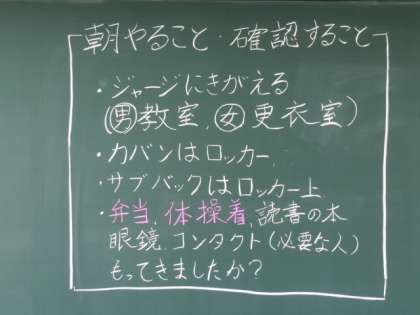 朝やること・確認すること
・ジャージにきがえる
(男教室, 女更衣室)
・カバンはロッカー,
・サブバックはロッカー上
・弁当, 体操着, 読書の本
眼鏡, コンタクト(必要な人)
もってきましたか?